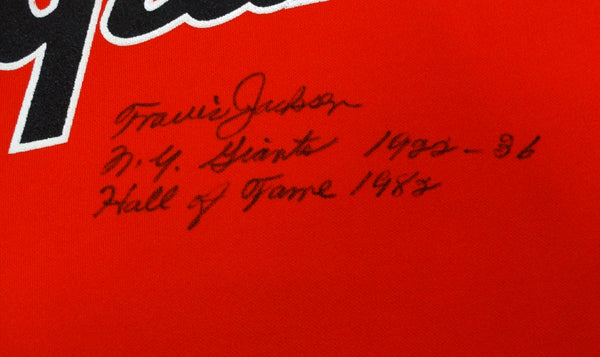 Travis Jackson
N.Y. Giants 1922-36
Hall of Fame 1982